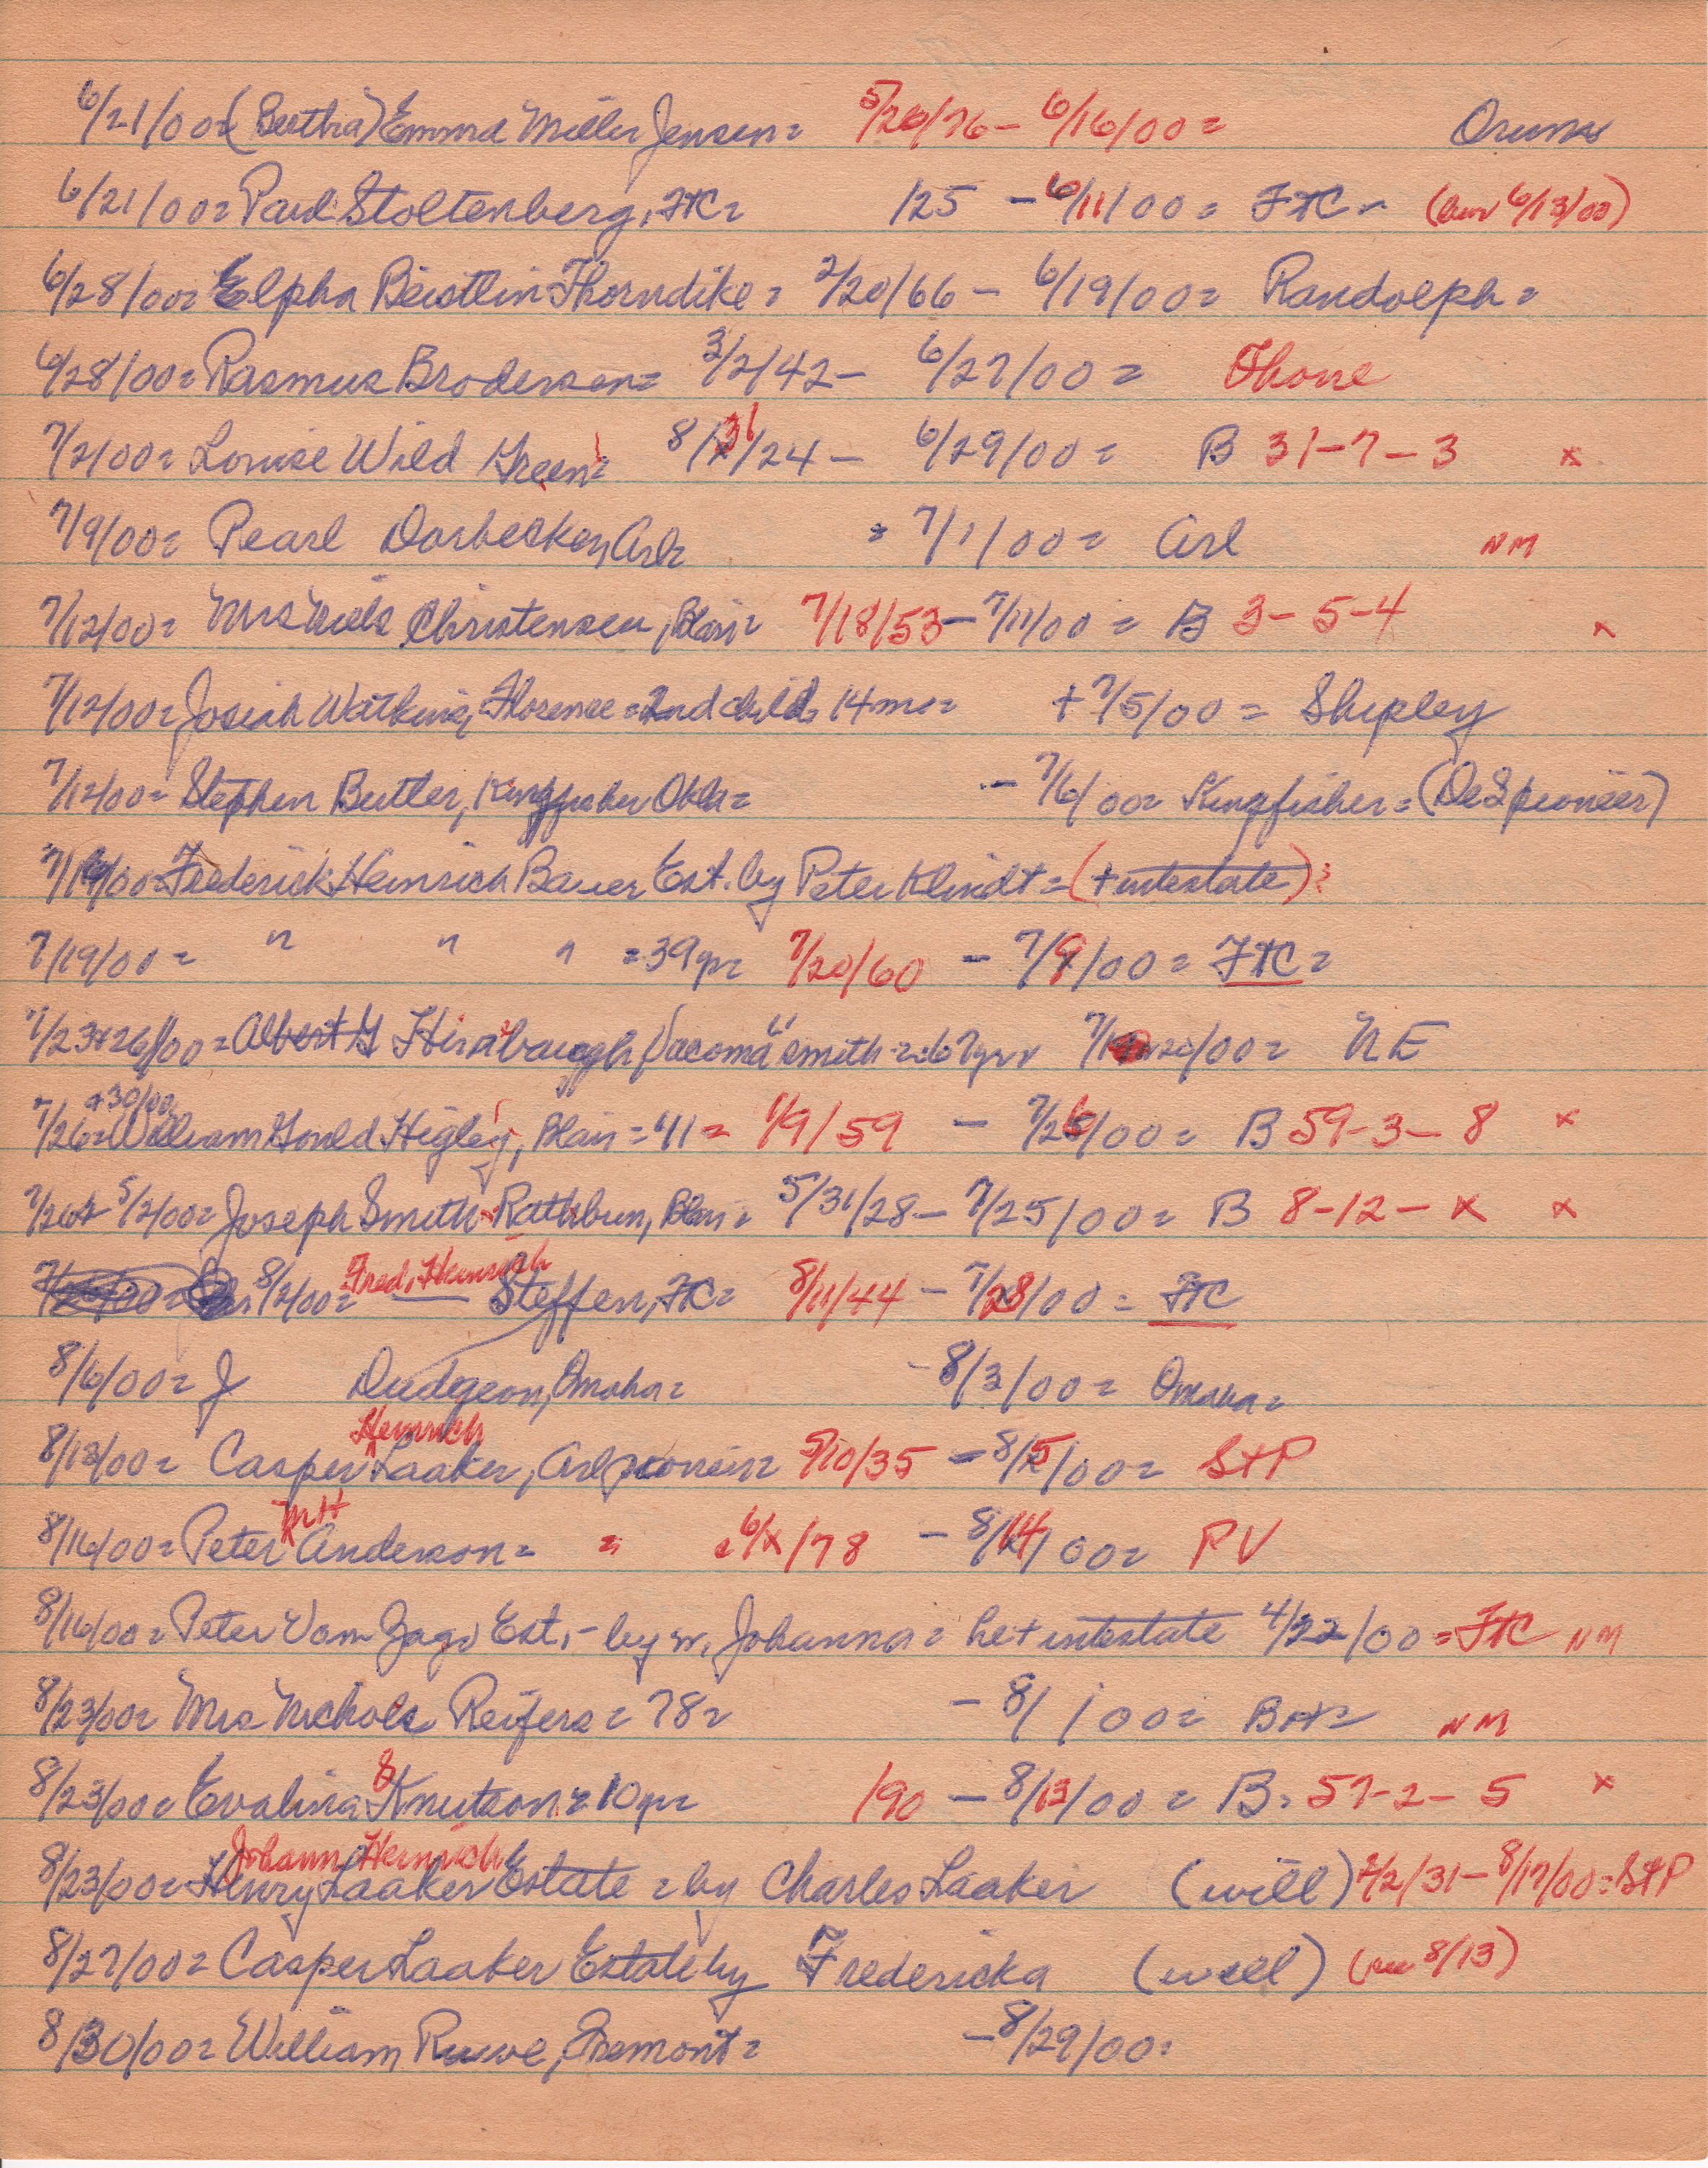 6/21/00=(Bertha) Emma Miller Jensen= 5/26/76- 6/16/00= Orum
6/21/00= Paul Stoltenberg, FtC= 125 - 6/11/00= FTC - (bur 6/13/00)
6/28/00= Elpha Beistlin Thorndike= 2/20/66- 6/19/00= Randolph=
6/28/00= Rasmus Brodersen= 3/2/42- 6/27/00=
7/2/00= Louise Wild Green= 8/31/24- 6/29/00= B 31-7-3 x
7/9/00= Pearl Dorbecker, Arl= = 7/1/00= Arl NM
7/12/00= Mrs Niels Christensen, Blair= 7/18/53- 7/11/00= B 3-5-4 x
7/12/00= Josiah Watkins, Florence=2nd child, 14mo= + 7/5/00= Shipley
7/12/00= Stephen Butler, Kingfisher Okla= - 7/6/00= Kingfisher=(DeS pioneer)
7/19/00= Frederick Heinrich Bauer Est. by Peter Klindt=(+intestate):
7/19/00= " " " =39yr= 7/20/60 - 7/9/00= FTC=
7/23+26/00= Albert G Hirabaugh "Jacoma" smith= 67yr= /00= NE
7/26+30/00=William Gould Higley, Blair='11= 1/9/59 - 7/26/00= B 59-3-8 x
7/26+ 5/2/00= Joseph Smith Rathbun, Blair= 5/31/28- 7/25/00= B 8-12-x x
8/2/00= Fred. Heinrich Steffen, FtC= 8/11/44- 7/28/00= FTC
8/6/00= J Dudgeon, Omaha= -8/3/00= Omaha=
8/13/00= Casper Heinrich Laaker, Arl pioneer= 5/10/35 - 8/5/00= StP
8/16/00= Peter Anderson= = c 6/x/78 - 8/14/00= PV
8/16/00= Peter Vom Est,- by w, Johanna= he+ intestate 4/22/00=FTC NM
8/23/00= Mrs Nichols Reifers= 78= - 8/1/00= NM
8/23/00= Evalina Knutson= 10yr= 190 - 8/13/00= B= 57-2-5 x
8/23/00= Johann Heinrich Henry Laaker Estate= by Charles Laaker (will) 2/2/31- 8/17/00=StP
8/27/00= Casper Laaker Estate by Fredericka (will) (see 8/13)
8/30/00= William Ruwe, Fremont= -8/29/00=